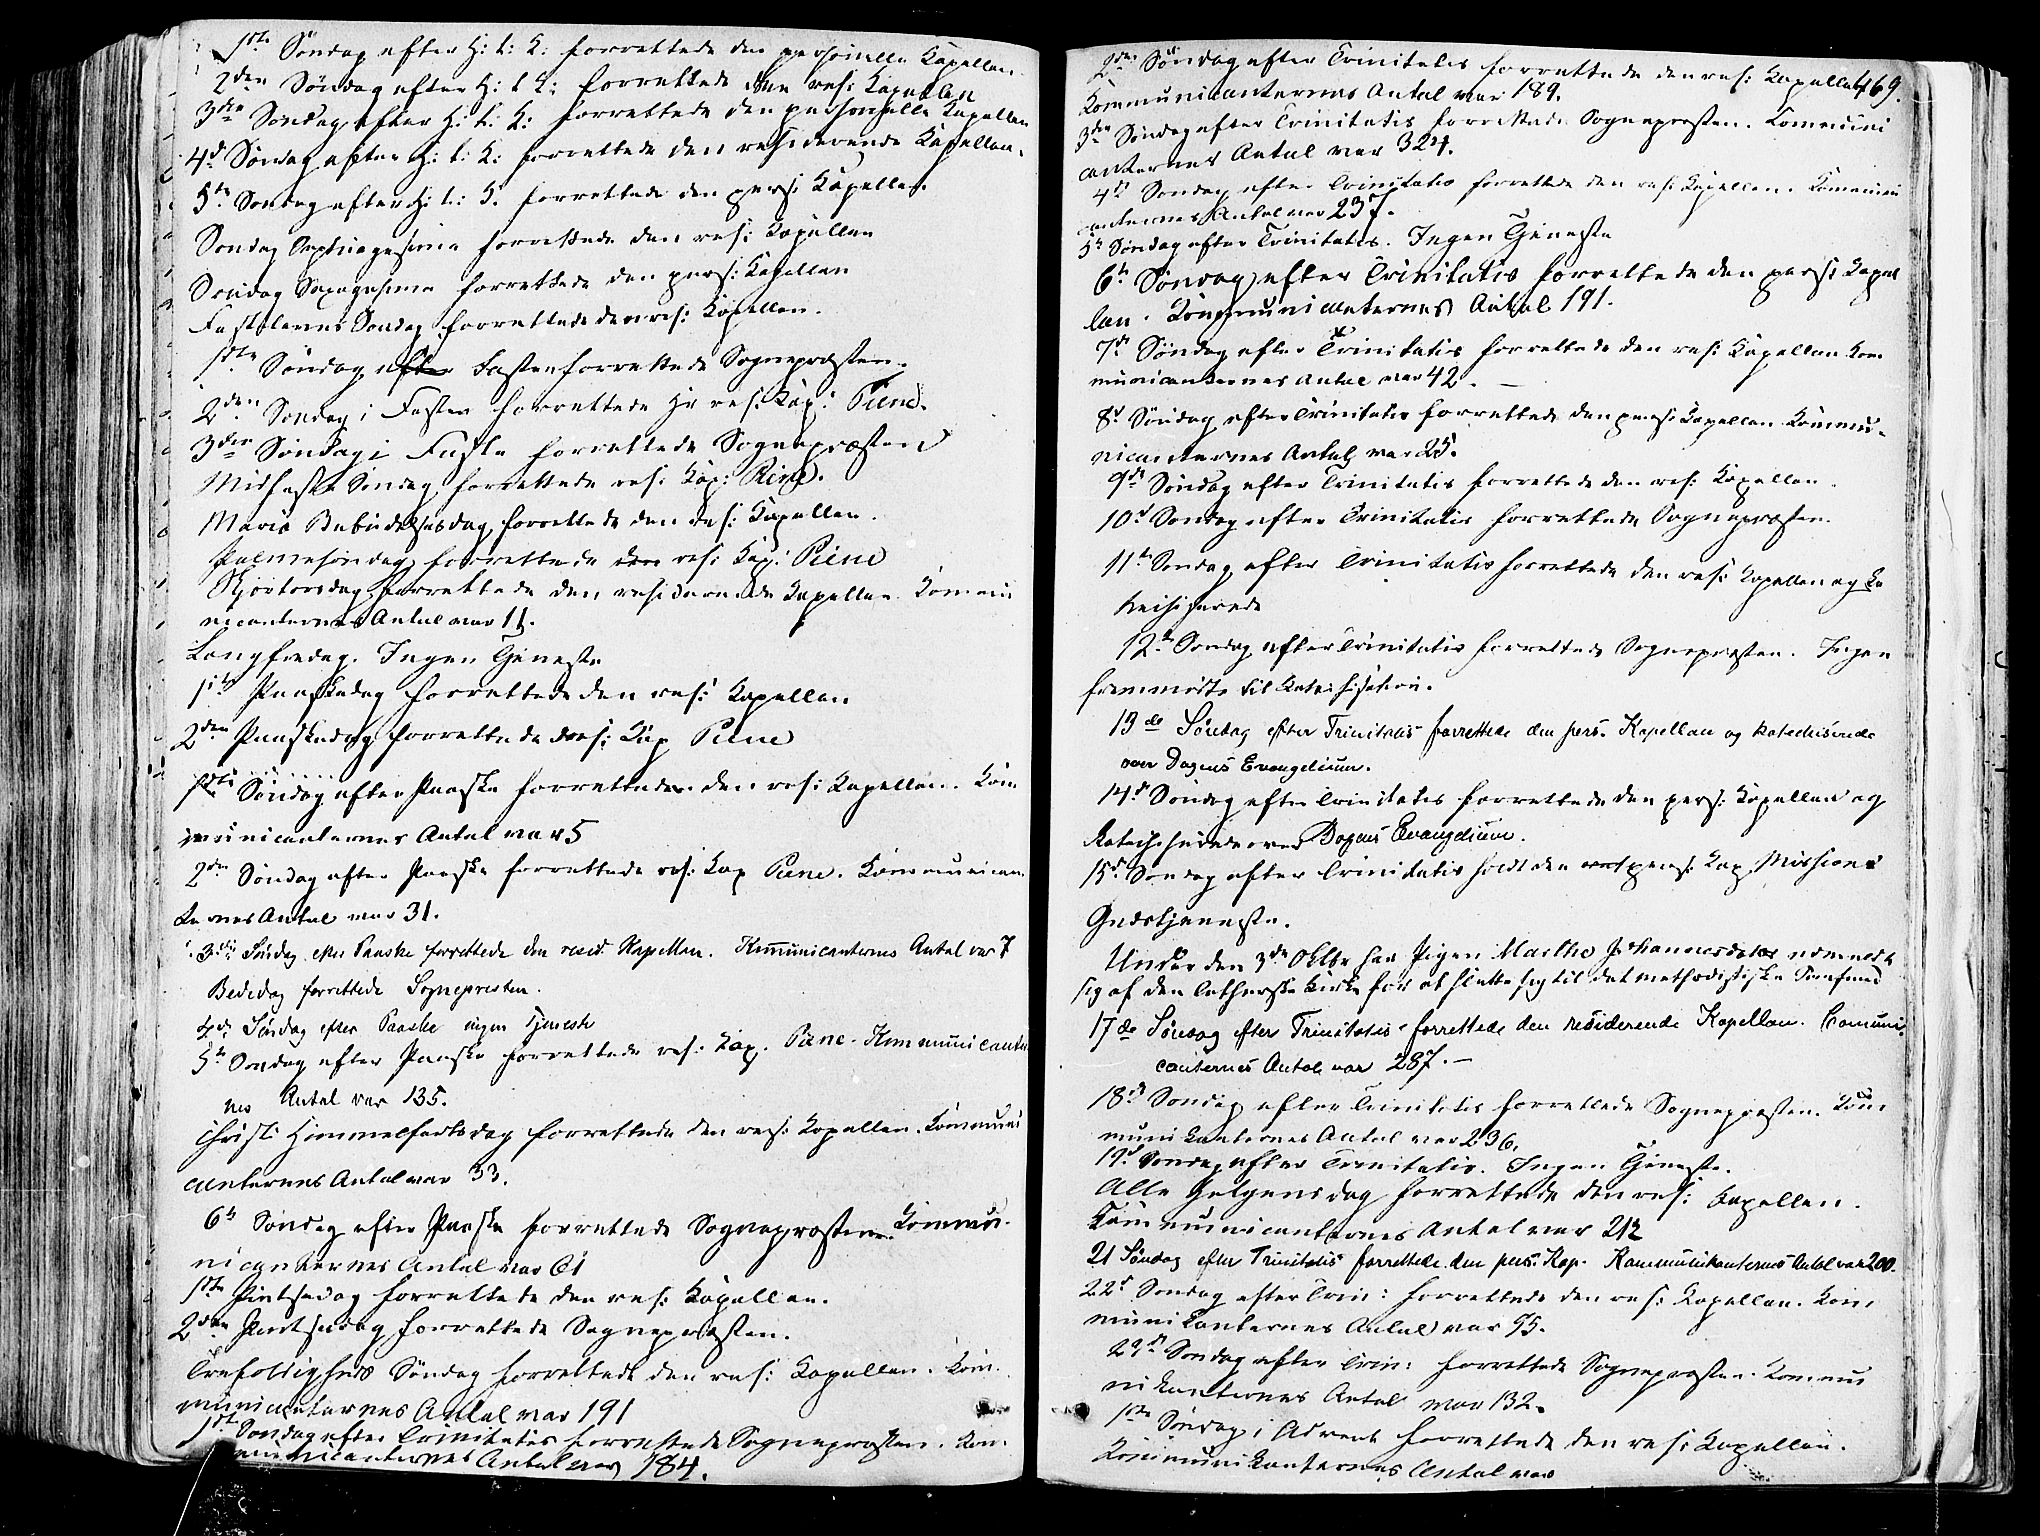 1ste Søndag efter H: t: K: forrettede den personelle Kapellan.
2den Søndag efter H: t K: forrettede den res: Kapellan
3die Søndag efter H: t: K: forrettede den personelle Kapellan
4d Søndag efter H: t: K: forrettede den residerende Kapellan.
5te Søndag efter H: t: K. forrettede den pers: Kapellan.
Søndag Septuagesima forrettede den res: Kapellan
Søndag Sexagesima forrettede den pers: Kapellan
Fastelavns Søndag forrettede den res: Kapellan.
1ste Søndag efter Fasten forrettede Sognepræsten.
2den Søndag i Fasten forrettede Hr res: Kap: Piene.
3die Søndag i Faste forrettede Sognepræsten
Midfaste Søndag forrettede res: Kap: Piene.
Maria Bebudelsesdag forrettede den res: Kapellan.
Palmesøndag forrettede den res: Kap: Piene
Skjærtorsdag forrettede den residerende Kapellan. Kommu
nicanternes Antal var 11.
Langfredag. Ingen Tjeneste
1ste Paaskedag forrettede den res: Kapellan
2den Paaskedag forrettede res: Kap Piene
1ste Søndag efter Paaske forrettede den res: Kapellan. Kom
municanternes Antal var 5
2den Søndag efter Paaske forrettede res: Kap Piene. Kommunican
ternes Antal var 31.
3die Søndag efter Paaske forrettede den resid. Kapellan. Kommunicanternes Antal var 7
Bededag forrettede Sognepresten.
4de Søndag efter Paaske ingen Tjeneste
5te Søndag efter Paaske forrettede res: Kap. Piene. Kommunicanter
nes Antal var 135.
Christi Himmelfartsdag forrettede den res: Kapellan. Kommuni
canternes Antal var 33.
6te Søndag efter Paaske forrettede Sognepræsten. Kommu-
nicanternes Antal var 61
1ste Pintsedag forrettede den res: Kapellan.
2den Pintsedag forrettede Sognepræsten.
Trefoldigheds Søndag forrettede den res: Kapellan. Kom.
municanternes Antal var 191
1ste Søndag efter Trinitatis forrettede Sognepræsten. Kom.
municanternes Antal var 184.
469.
2den Søndag efter Trinitatis forrettede den res: Kapellan
Kommunicanternes Antal var 189.
3die Søndag efter Trinitatis forrettede Sognepræsten. Kommuni
canternes Antal var 324.
4de Søndag efter Trinitatis forrettede den res: Kapellan. Kommuni
canternes Antal var 237.
5te Søndag efter Trinitatis. Ingen Tjeneste
6te Søndag efter Trinitatis forrettede den pers: Kapel
lan. Kommunicanternes Antal 191.
7de Søndag efter Trinitatis forrettede den res: Kapellan Kom
municanternes Antal var 42. —
8de Søndag efter Trinitatis forrettede den pers: Kapellan Kommu-
nicanternes Antal var 25.
9de Søndag efter Trinitatis forrettede den res: Kapellan.
10d Søndag efter Trinitatis forrettede Sognepræsten.
11te Søndag efter Trinitatis forrettede den res: Kapellan og ka
theiserede
12te Søndag efter Trinitatis forrettede Sognepræsten. Ingen
fremmødte til Katechisation.
13de Søndag efter Trinitatis forrettede den pers. Kapellan og katechiserede
over Dagens Evangelium.
14de Søndag efter Trinitatis forrettede den pers: Kapellan og
Katechiserede over Dagens Evangelium.
15d. Søndag efter Trinitatis holdt den pers: Kap. Missions
Gudstjeneste.
Under den 3de Oktbr har Pigen Marthe Johannesdatter udmeldt
sig af den lutherske Kirke for at slutte sig til det methodistiske Samfund
17de Søndag efter Trinitatis forrettede den residerende Kapellan. Communi
canternes Antal var 287. —
18de Søndag efter Trinitatis forrettede Sognepræsten. Kom.
munikanternes Antal var 236.
19d Søndag efter Trinitatis. Ingen Tjeneste.
Alle Helgens dag forrettede den res: Kapellan.
Kommunicanternes Antal var 212
21 Søndag efter Trinitatis forrettede den pers. Kap. Kommunikanternes Antal var 200.
22d Søndag efter Trin: forrettede den res: Kapellan. Kom.
munikanternes Antal var 95.
23d Søndag efter Trin: forrettede Sognepræsten. Kommu
nikanternes Antal var 132.
1ste Søndag i Advent forrettede den res: Kapellan.
Kommunikanternes Antal var